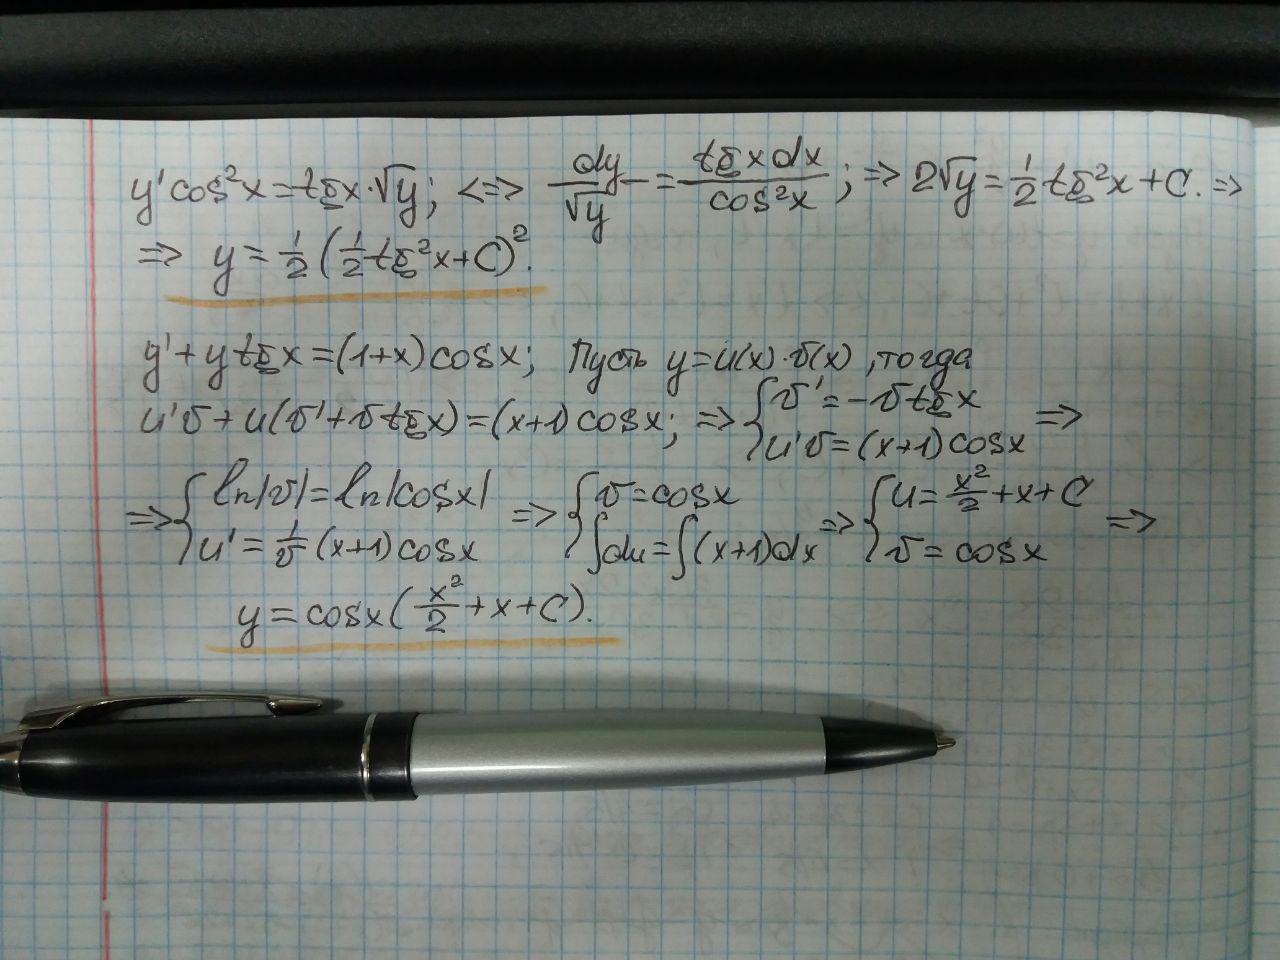 y' cos²x = tg x · √y; <=> dy/√y = tg x dx / cos²x ; => 2√y = 1/2 tg²x + C. =>
=> y = 1/2 (1/2 tg²x + C)².
y' + y tg x = (1+x) cos x; Пусть y = u(x) · v(x), тогда
u'v + u(v' + v tg x) = (x+1) cos x; => { v' = -v tg x ; u'v = (x+1) cos x =>
=> { ln|v| = ln|cos x| ; u' = 1/v (x+1) cos x => { v = cos x ; ∫du = ∫(x+1)dx => { u = x²/2 + x + C ; v = cos x =>
y = cos x (x²/2 + x + C).